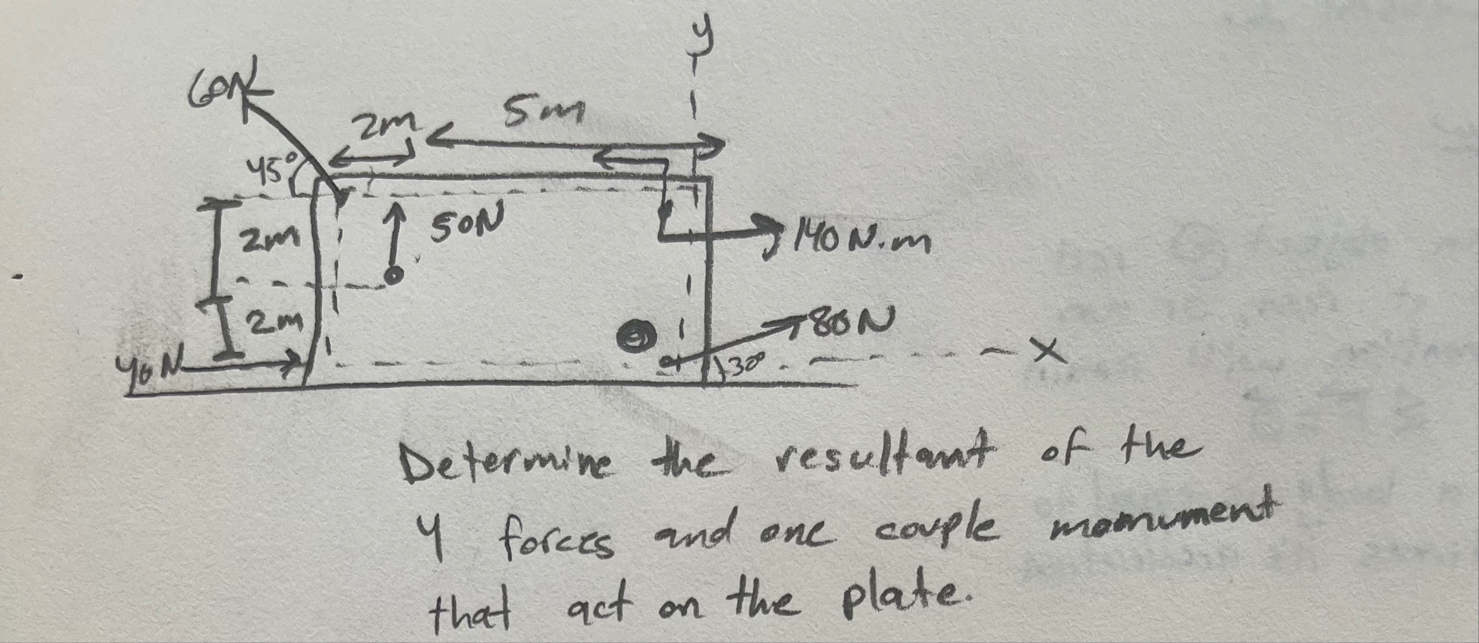 y
60N
5m
2m
45°
50N
2m
140 N.m
2m
80N
40N
30°
x
Determine the resultant of the
4 forces and one couple momument
that act on the plate.